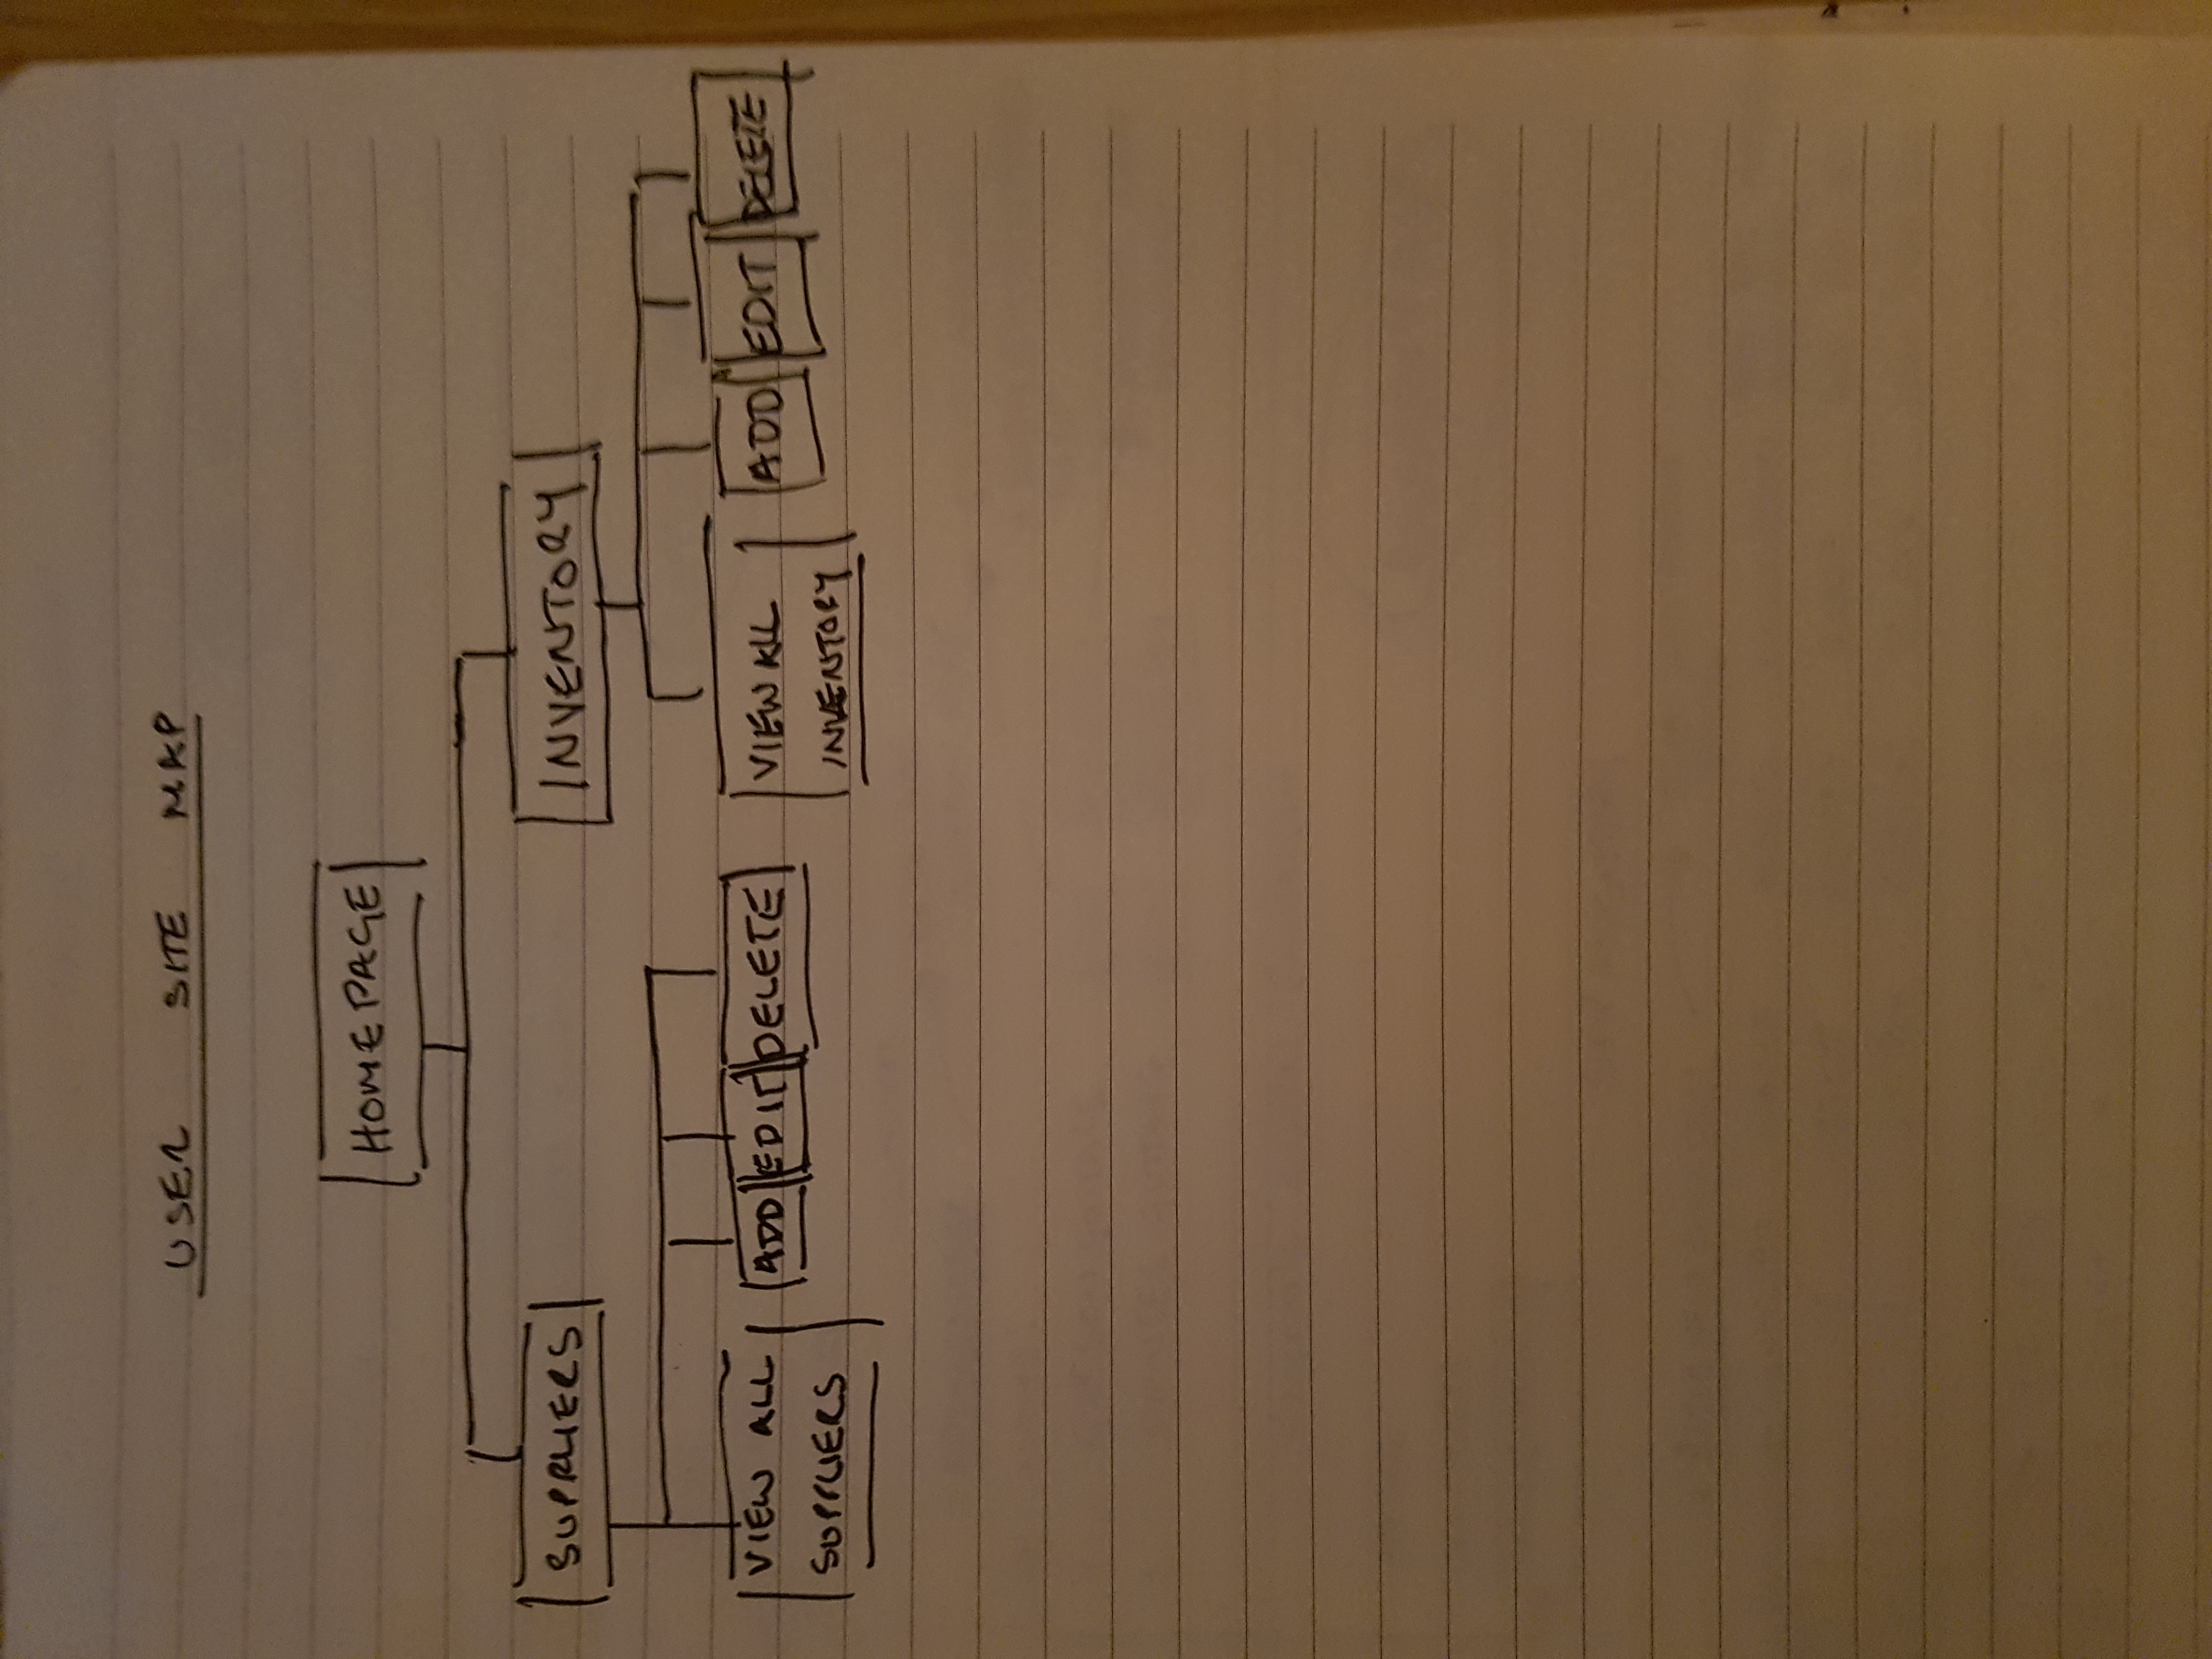 USER SITE MAP
HOMEPAGE
SUPPLIERS
INVENTORY
VIEW ALL
SUPPLIERS
ADD
EDIT
DELETE
VIEW ALL
INVENTORY
ADD
EDIT
DELETE